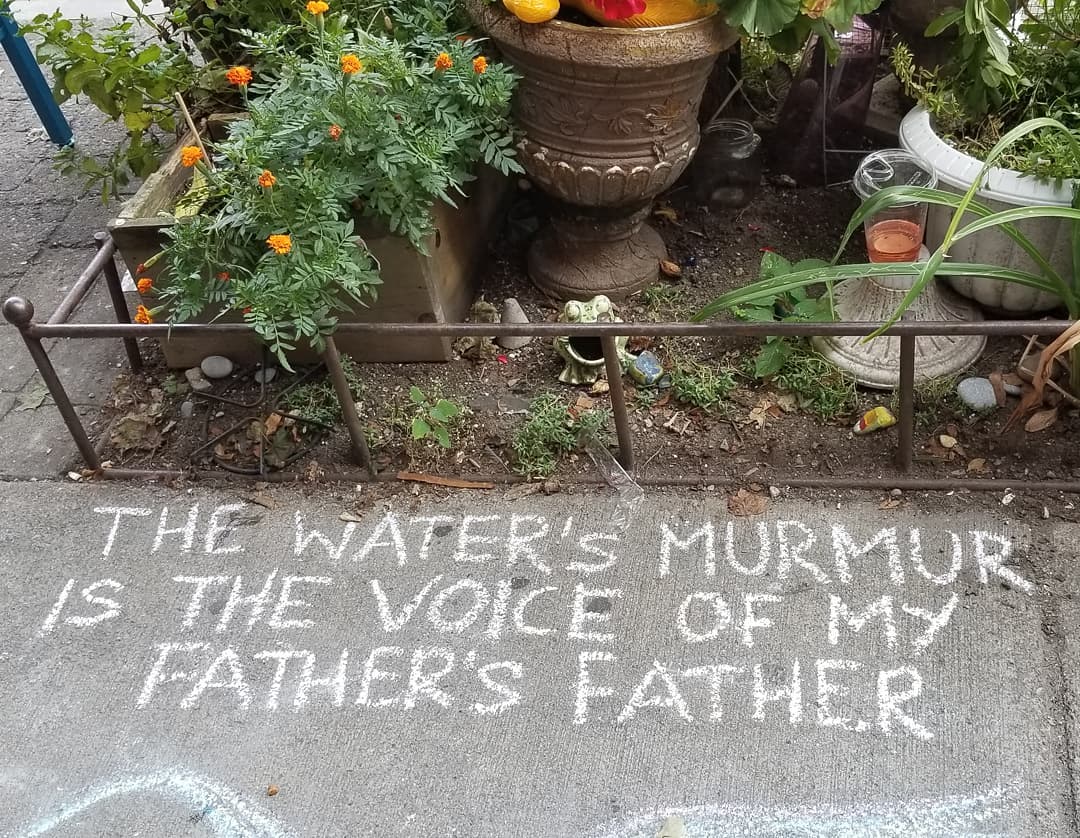 THE WATER'S MURMUR
IS THE VOICE OF MY
FATHER'S FATHER